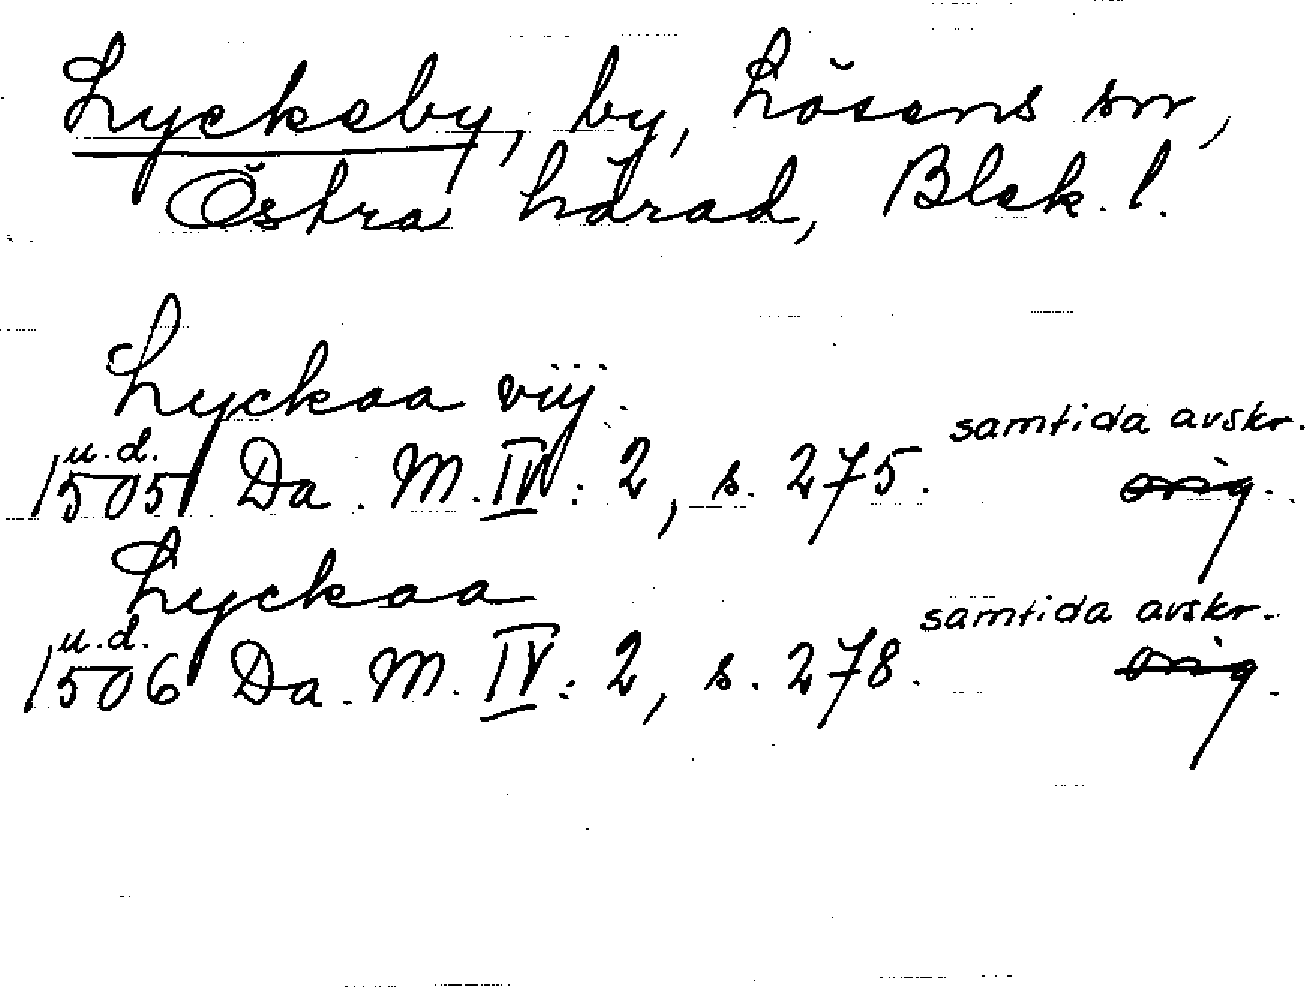 Lyckeby, by, Lösens sn,
Östra härad, Blek. l.
Lyckaa viij.
samtida avskr.
u.d.
1505 Da. M. IV: 2, s. 275. orig.
Lyckaa
samtida avskr.
u.d.
1506 Da. M. IV: 2, s. 278. orig.